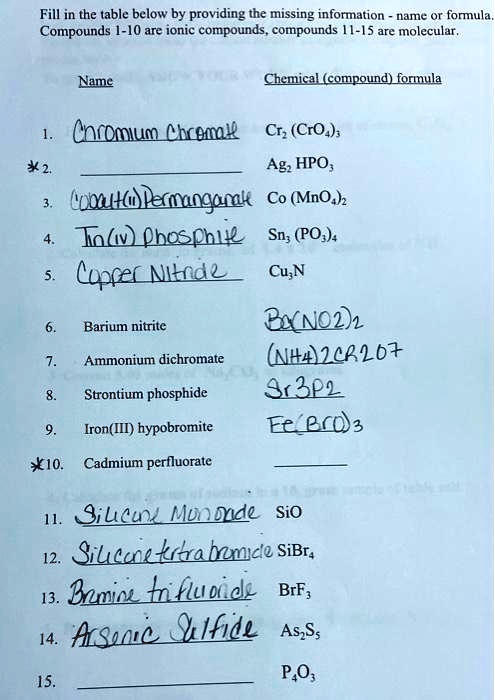 Fill in the table below by providing the missing information - name or formula.
Compounds 1-10 are ionic compounds, compounds 11-15 are molecular.
Name Chemical (compound) formula
1. Chromium Chromate Cr₂ (CrO₄)₃
*2. Ag₂ HPO₃
3. Cobalt(ii) Permanganate Co (MnO₄)₂
4. Tin(iv) Phosphite Sn₃ (PO₃)₄
5. Copper Nitride Cu₃N
6. Barium nitrite Ba(NO2)2
7. Ammonium dichromate (NH4)2CR2O7
8. Strontium phosphide Sr3P2
9. Iron(III) hypobromite Fe(BrO)3
*10. Cadmium perfluorate
11. Silicone Monoxide SiO
12. Silicone tertrabromide SiBr₄
13. Bromine trifluoride BrF₃
14. Arsenic Sulfide As₂S₅
15. P₄O₃